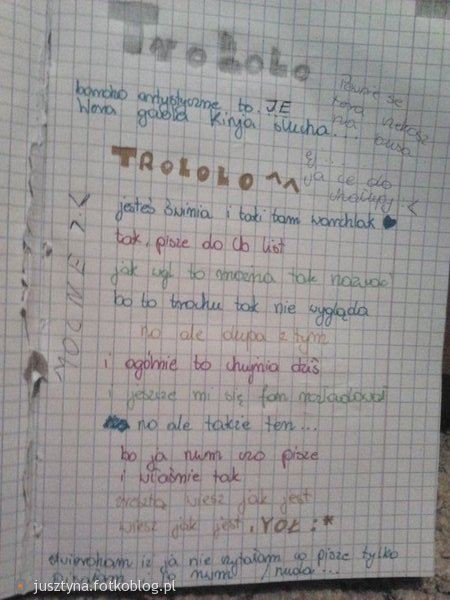 TROŁOLO
bardzo artystyczne to. JE
Wera gada Kinja słucha...
TROŁOLO ^^
ja ce do
chałupy :<
jesteś świnia i taki tam warchlak
tak, pisze do Cb list
jak wgl to można tak nazwać
bo to trochu tak nie wygląda
no ale dupa z tym
i ogólnie to chujnia dziś
i jeszcze mi się fon rozładował
no ale także ten...
bo ja num czo pisze
i właśnie tak
zresztą wiesz jak jest
wiesz jak jest, YOŁ :*
MOCNE
iż ja nie czytałam co pisze tylko
nuda...
jusztyna.fotkoblog.pl